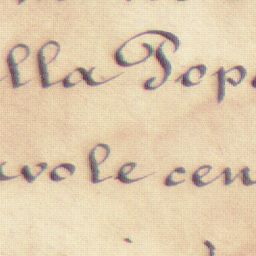 lla Pop
vole cen